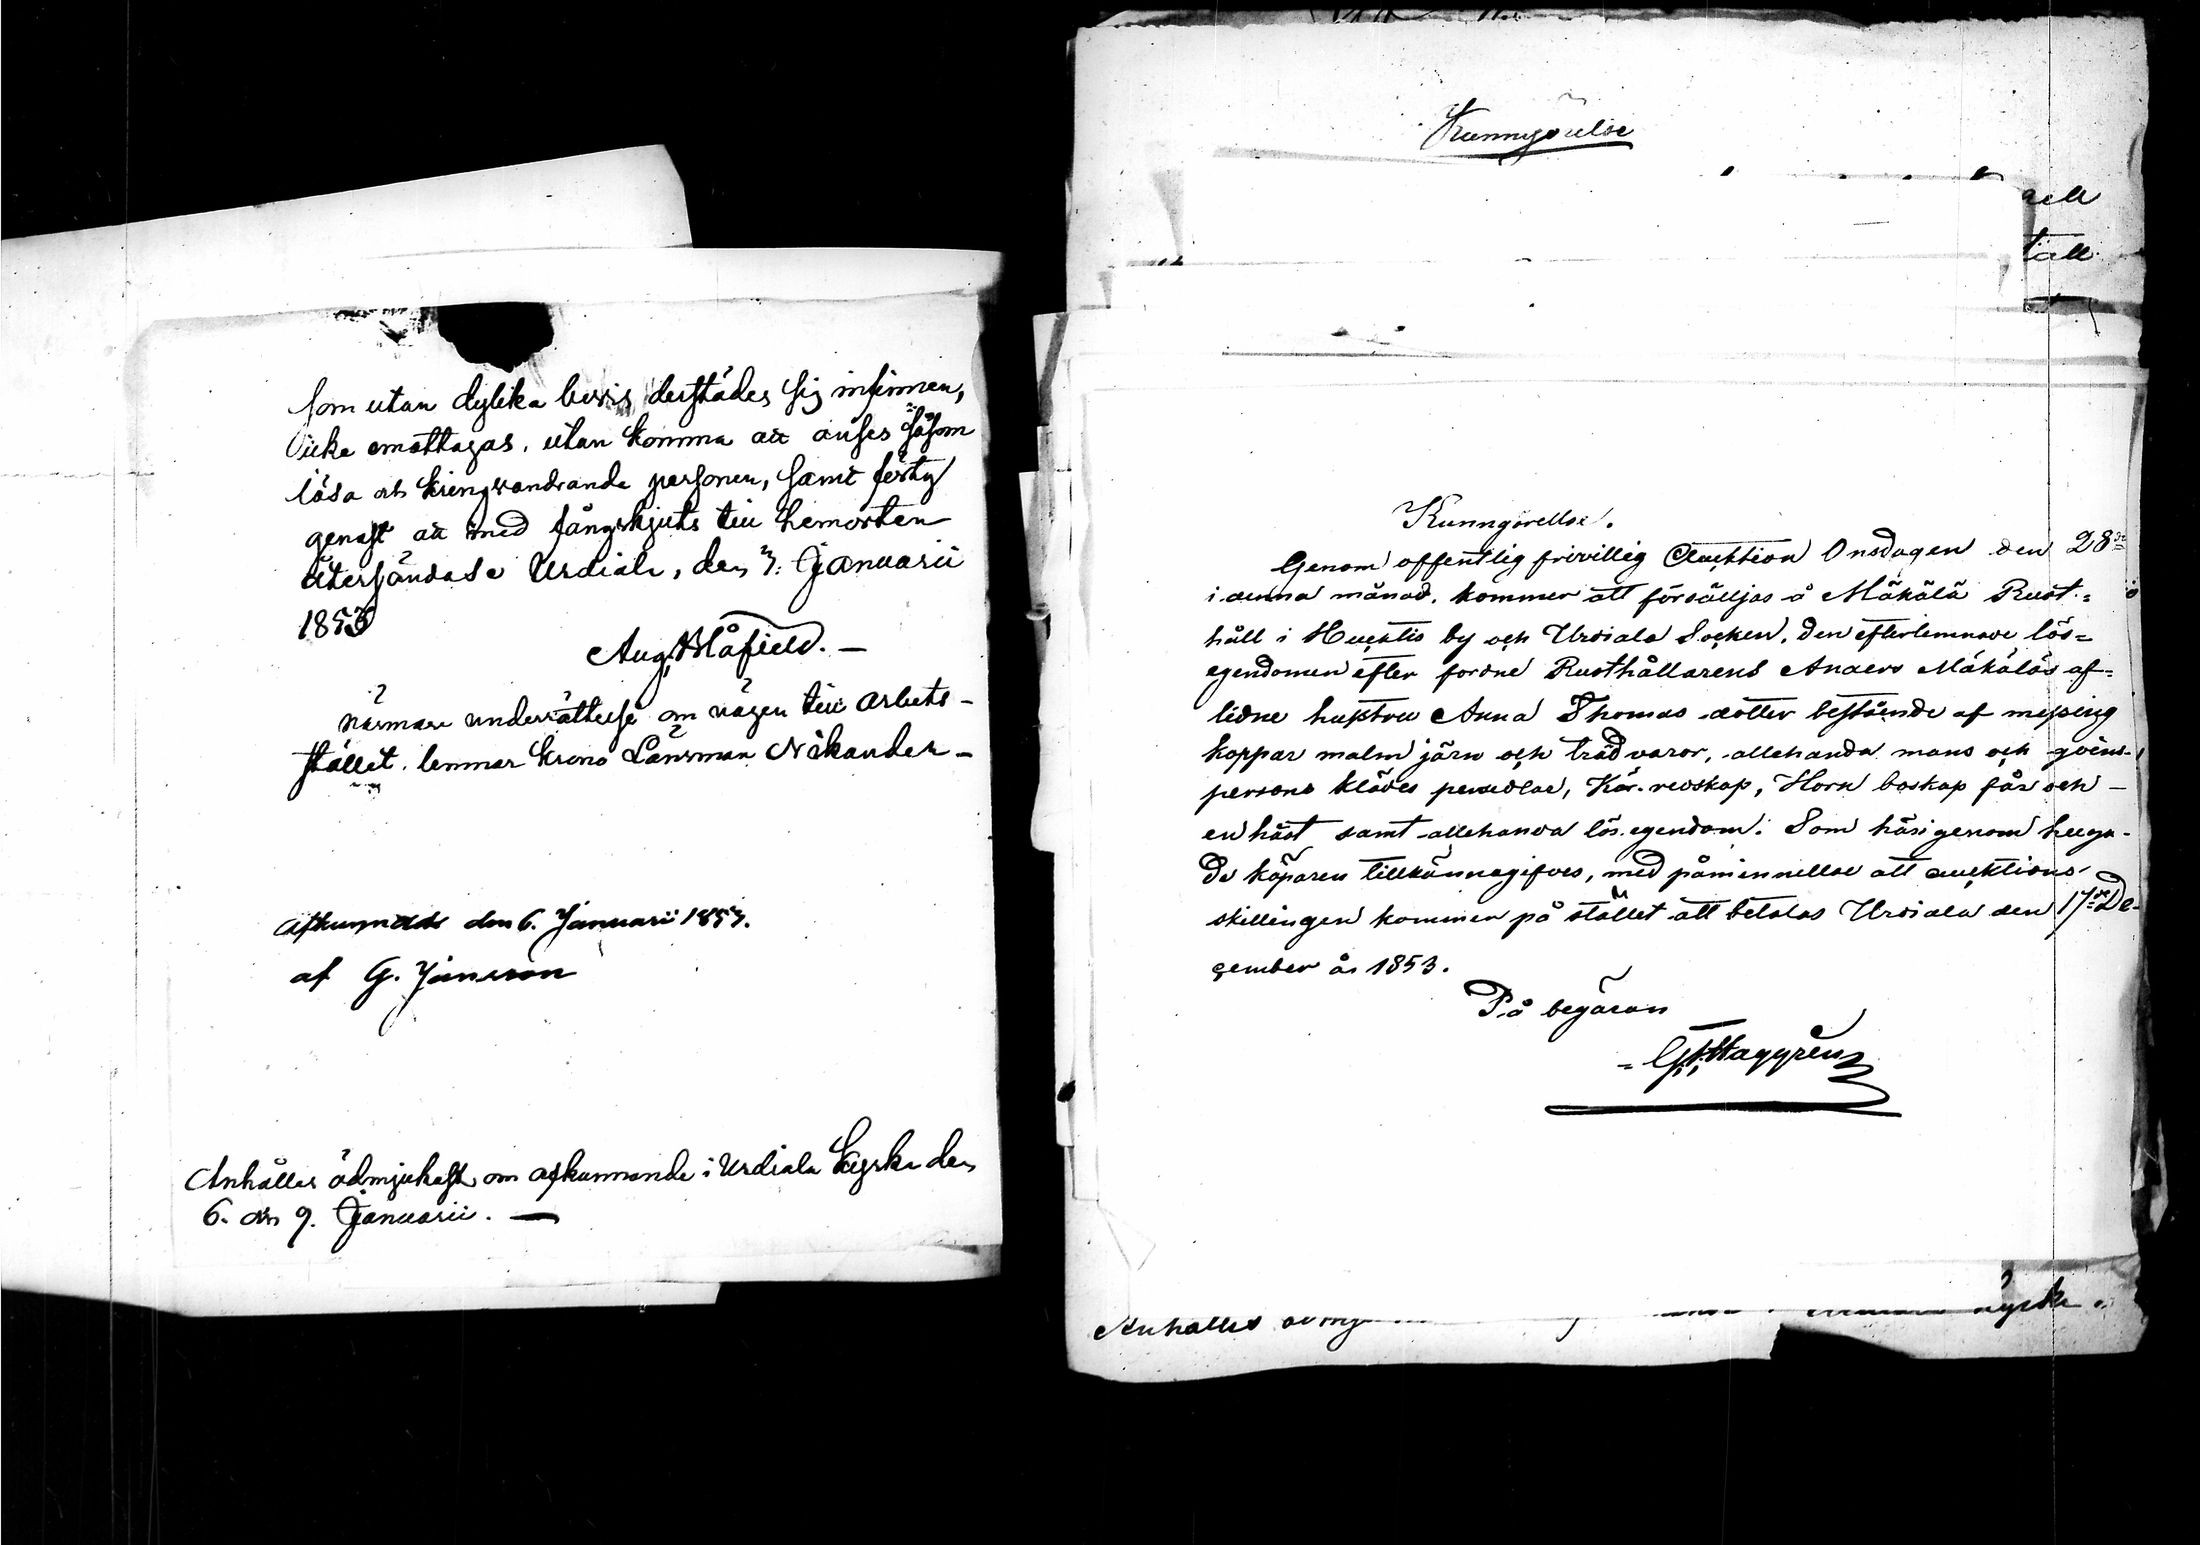 som utan dylika bevis derstädes sig infinner,
icke emottagas, utan komma att anses såsom
lösa och kringvandrande personer, samt förty
genast att med fångskjuts till hemorten
återsändas. Urdiala, den 3. Januarii
1853
Aug. Blåfield. —
Närmare underrättelse om vägen till arbets-
stället lemnar Krono Länsman Nikander —
Afkunnades den 6. Januari 1853.
af G. Jansson
Anhålles ödmjukast om afkunnande i Urdiala Kyrka den
6. och 9. Januarii. —
Kunngörelse
täll
Kunngörellse.
Genom offentlig frivillig Aucktion Onsdagen den 28de
i denna månad, kommer att försälljas å Mäkälä Rust-
håll i Hucktis by och Urdiala Socken, den efterlemnade lös-
egendomen efter fordne Rusthållarens Anders Mäkäläs af-
lidne hustru Anna Thomas dotter bestående af messing
koppar malm järn och träd varor, allehanda mans och qvins-
persons klädes persedlar, Kör-redskap, Horn boskap får och —
en häst samt allehanda lös egendom. Som härigenom huga-
de köparen tillkännagifves, med påminnellse att aucktions
skillingen kommer på stället att betalas Urdiala den 17de De-
cember år 1853.
På begäran
G. Haggrén
Anhålles ödmj
kyrka